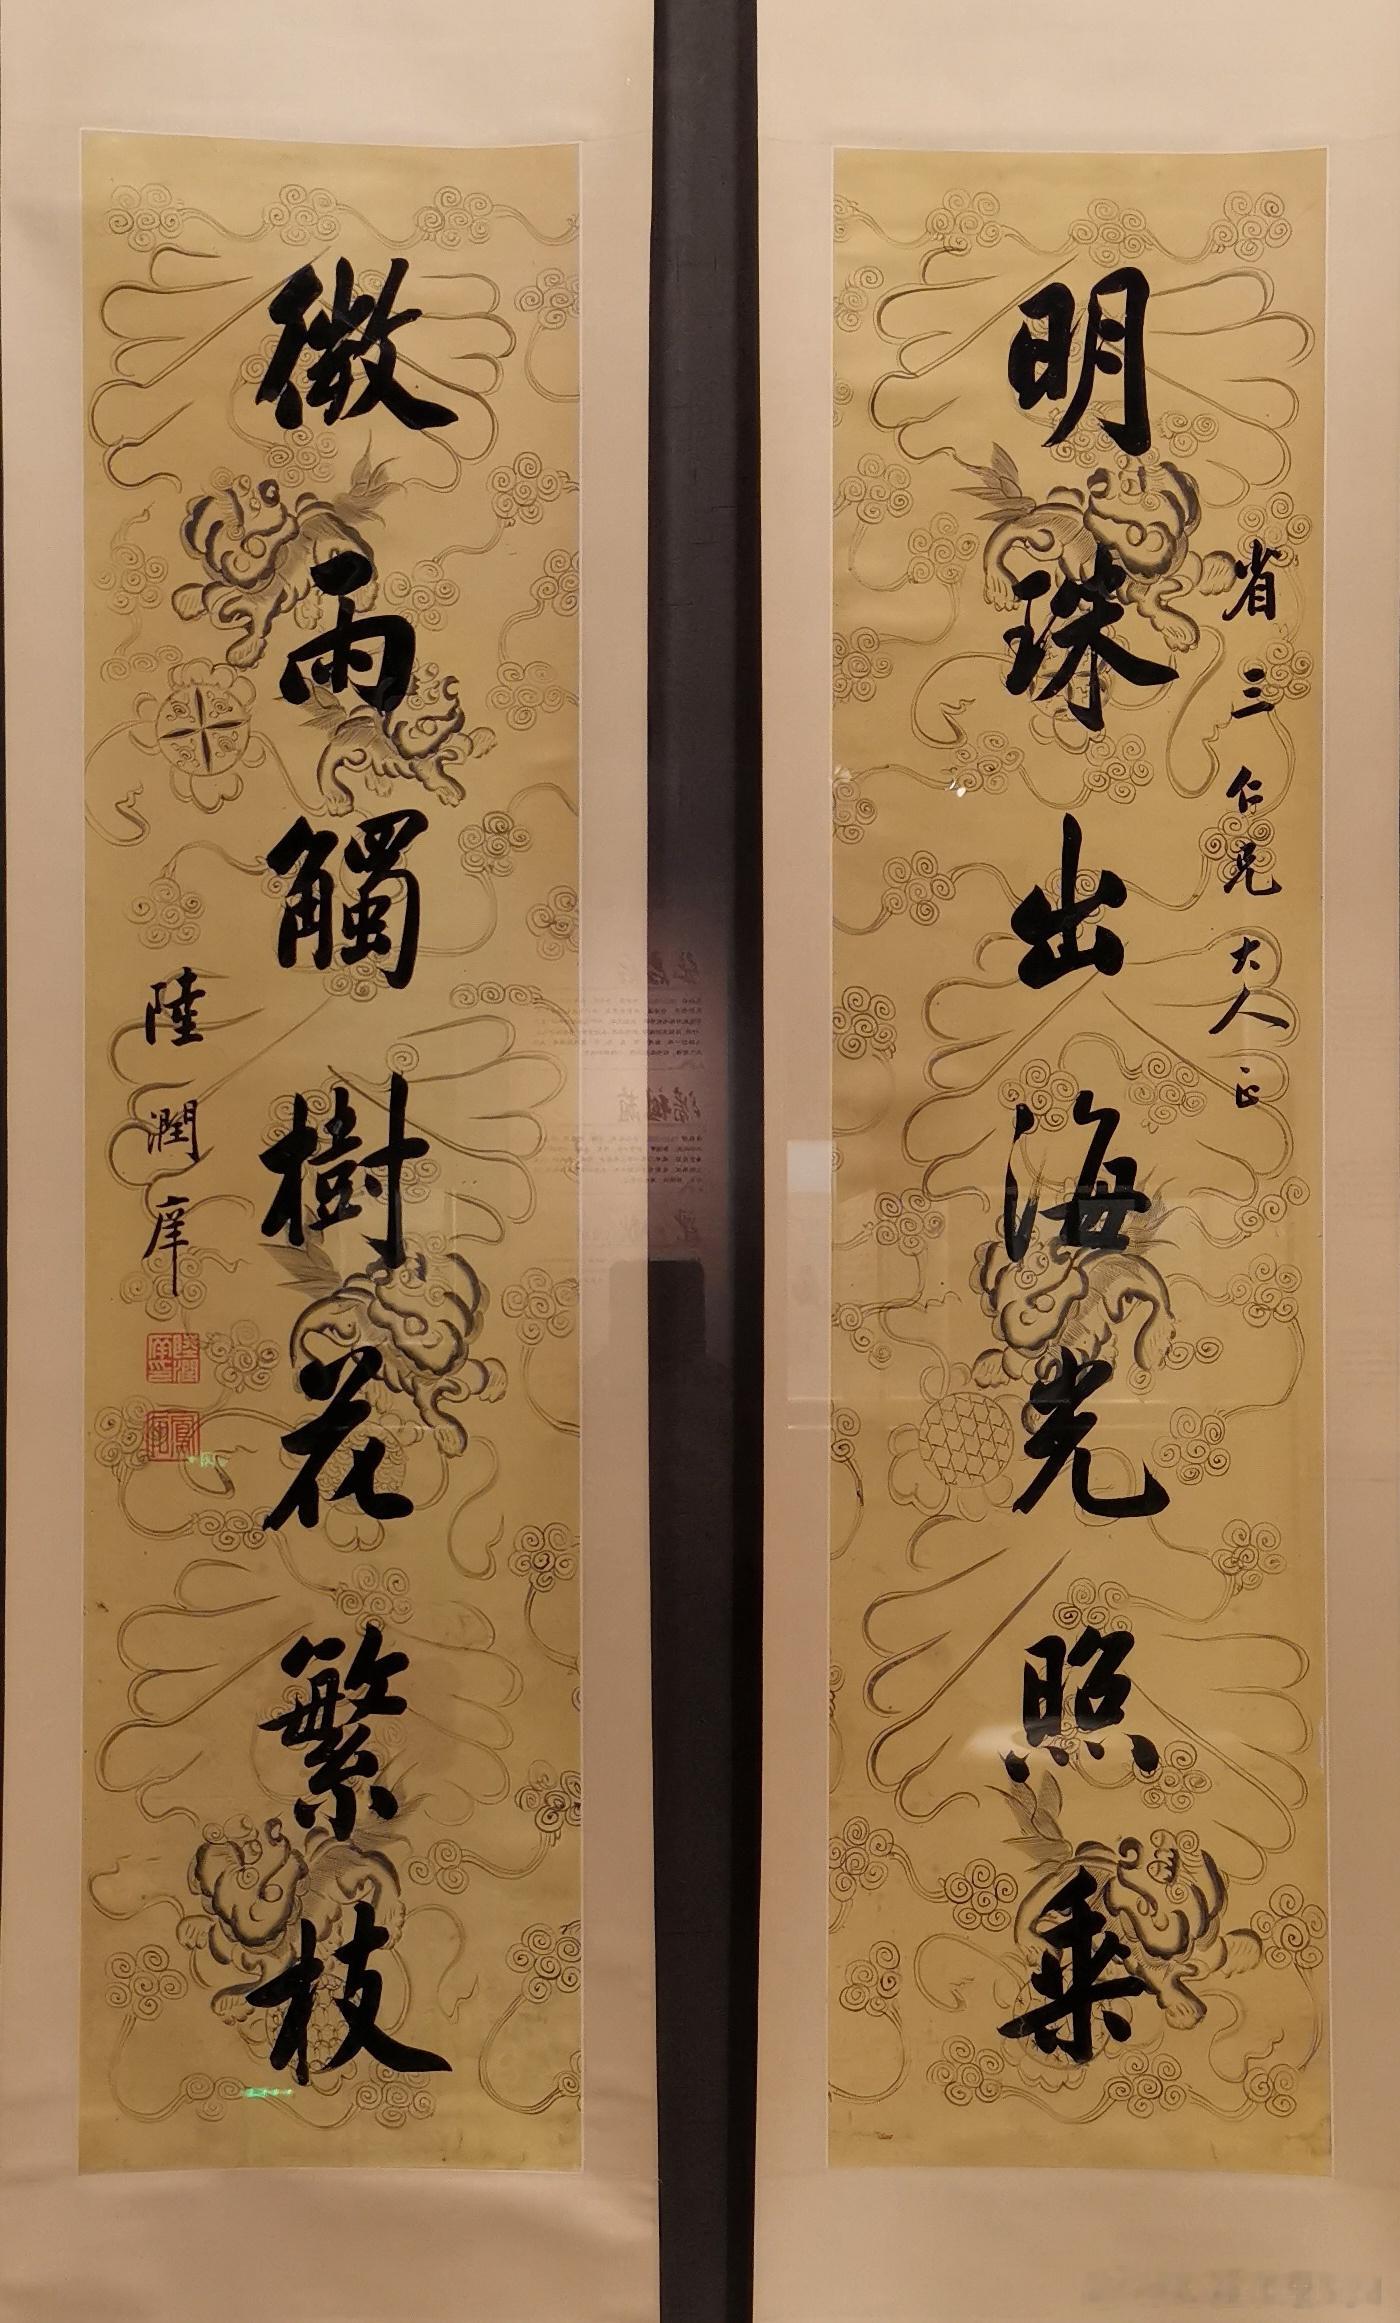 明珠出海光照乘
省三仁兄大人正
微雨觸樹花繁枝
陸潤庠
陸潤庠印